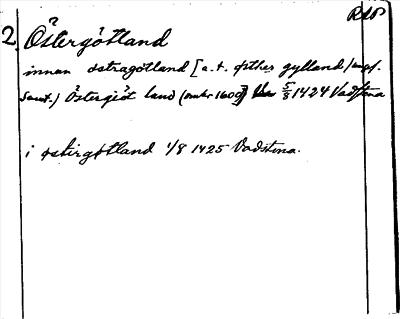 RAP
2 Östergötland
innan østragøtland [a. t. østher gylland (ungf.
samt.) Östergiöt land (omkr. 1600)] 5/8 1424 Vadstena
i østirgøtland 1/8 1425 Vadstena.